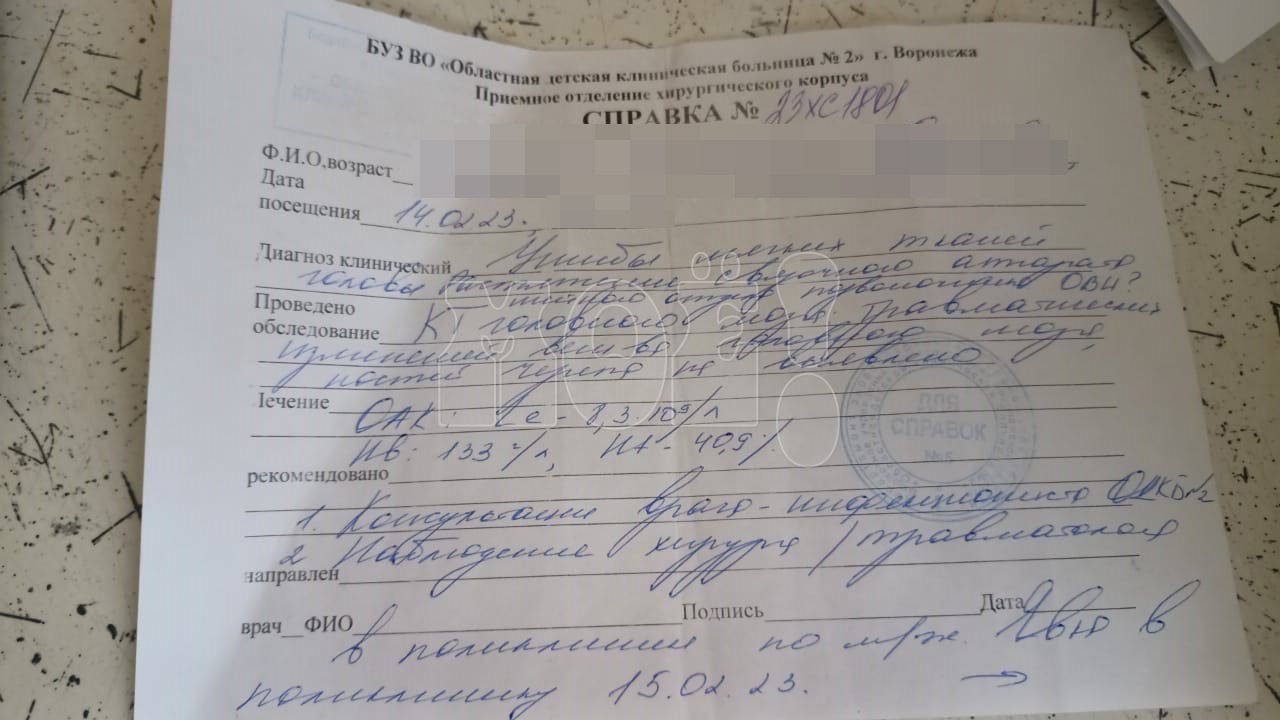 БУЗ ВО «Областная детская клиническая больница № 2» г. Воронежа
Приемное отделение хирургического корпуса
СПРАВКА № 23ХС1801
Ф.И.О,возраст
Дата
посещения 14.02 23.
Диагноз клинический Ушибы мягких тканей
головы Растяжение связочного аппарата
шейного отдела позвоночника ОВИ?
Проведено
обследование КТ головного мозга травматических
изменений вещ-ва головного мозга,
костей черепа не выявлено
Лечение ОАК: Lc - 8,3·10⁹/л
Нв: 133 г/л, Ht - 40,9%
рекомендовано
1. Консультация врача-инфекциониста ОДКБ№2
2 Наблюдение хирурга / травматолога
направлен
врач ФИО Подпись Дата
в поликлинике по м/ж. Явка в
поликлинику 15.02.23. →
ДЛЯ
СПРАВОК
№5
МОЁ!